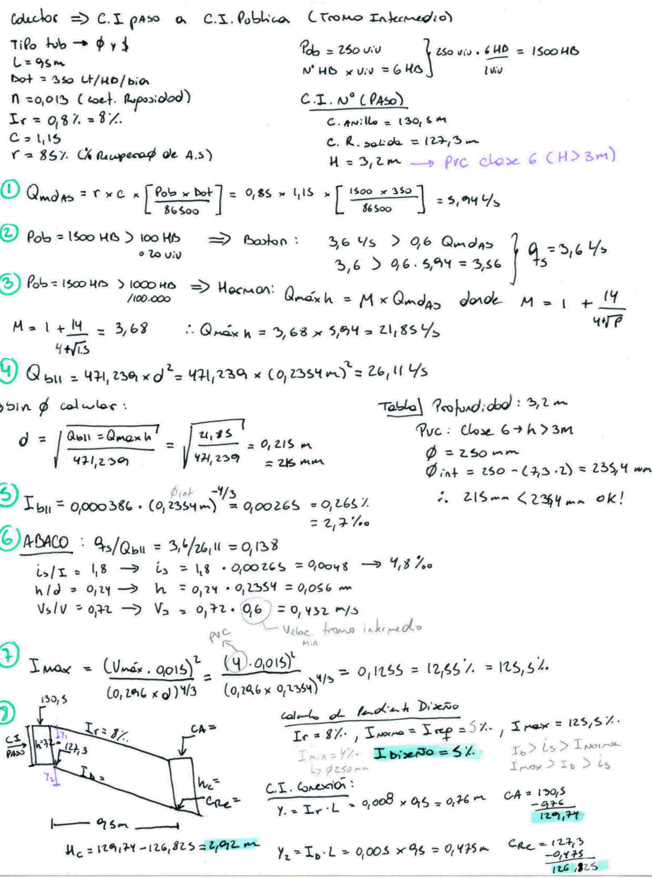 Colector => C.I paso a C.I. Publica (Tramo Intermedio)
Tipo tub → ϕ y $
L = 95m
Dot = 350 Lt/HB/dia
n = 0,013 (coef. Rugosidad)
Ir = 0,8% = 8‰
C = 1,15
r = 85% (% Recuperaº de A.S)
Pob = 250 viv
Nº HB x viv = 6 HB } 250 viv. 6 HB / 1 viv = 1500 HB
C.I. Nº (PASO)
C. Anillo = 130,5 m
C. R. salida = 127,3 m
H = 3,2 m → PVC clase 6 (H > 3m)
① QmdAS = r x c x [Pob x Dot / 86500] = 0,85 x 1,15 x [1500 x 350 / 86500] = 5,94 L/s
② Pob = 1500 HB > 100 HB o 20 viv => Boston: 3,6 L/s > 0,6 QmdAS
3,6 > 0,6 · 5,94 = 3,56 } q_s = 3,6 L/s
③ Pob = 1500 HB > 1000 HB /100.000 => Harmon: Qmáx h = M x QmdAS donde M = 1 + 14 / 4+√P
M = 1 + 14 / 4+√1.5 = 3,68 ∴ Qmáx h = 3,68 x 5,94 = 21,85 L/s
④ Qbll = 471,239 x d² = 471,239 x (0,2354m)² = 26,11 L/s
ϕ calcular:
d = √(Qbll = Qmax h / 471,239) = √(21,85 / 471,239) = 0,215 m
= 215 mm
Tabla Profundidad: 3,2 m
PVC: Clase 6 → h > 3M
ϕ = 250 mm
ϕint = 250 - (7,3 · 2) = 235,4 mm
∴ 215 mm < 235,4 mm OK!
ϕint
⑤ Ibll = 0,000386 · (0,2354m)^-4/3 = 0,00265 = 0,265%
= 2,7‰
⑥ ABACO: q_s/Qbll = 3,6/26,11 = 0,138
is/I = 1,8 → is = 1,8 · 0,00265 = 0,0048 → 4,8‰
h/d = 0,24 → h = 0,24 · 0,2354 = 0,056 m
Vs/V = 0,72 → Vs = 0,72 · 0,6 = 0,432 m/s
Veloc tramo intermedio
min
PVC
⑦ Imax = (Vmáx · 0,015)² / (0,296 x d)^4/3 = (4 · 0,015)² / (0,296 x 0,2354)^4/3 = 0,1255 = 12,55% = 125,5‰
⑧ 130,5
C.I PASO
Y1
127,3
Y2
Ir = 8‰
ID =
CA =
hc =
CRe =
95m
Hc = 129,74 - 126,825 = 2,92 m
Calculo de Pendiente Diseño
Ir = 8‰, Inorma = Irep = 5‰, Imax = 125,5‰
Imin = 4‰
↳ ϕ250mm
IDiseño = 5‰
ID > is > Inorma
Imax > ID > is
C.I. Conexión:
Y1 = Ir · L = 0,008 x 95 = 0,76 m
CA = 130,5
-0,76
129,74
Y2 = ID · L = 0,005 x 95 = 0,475 m
CRe = 127,3
-0,475
126,825